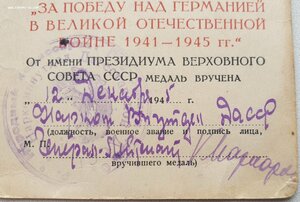 „ЗА ПОБЕДУ НАД ГЕРМАНИЕЙ
В ВЕЛИКОЙ ОТЕЧЕСТВЕННОЙ
ВОЙНЕ 1941—1945 гг."
От имени ПРЕЗИДИУМА ВЕРХОВНОГО
СОВЕТА СССР МЕДАЛЬ ВРУЧЕНА
"12" Декабря 1945
Нарком Внутдел Дасср
(должность, военное звание и подпись лица,
М. П. Генерал-Лейтенант
вручившего медаль)